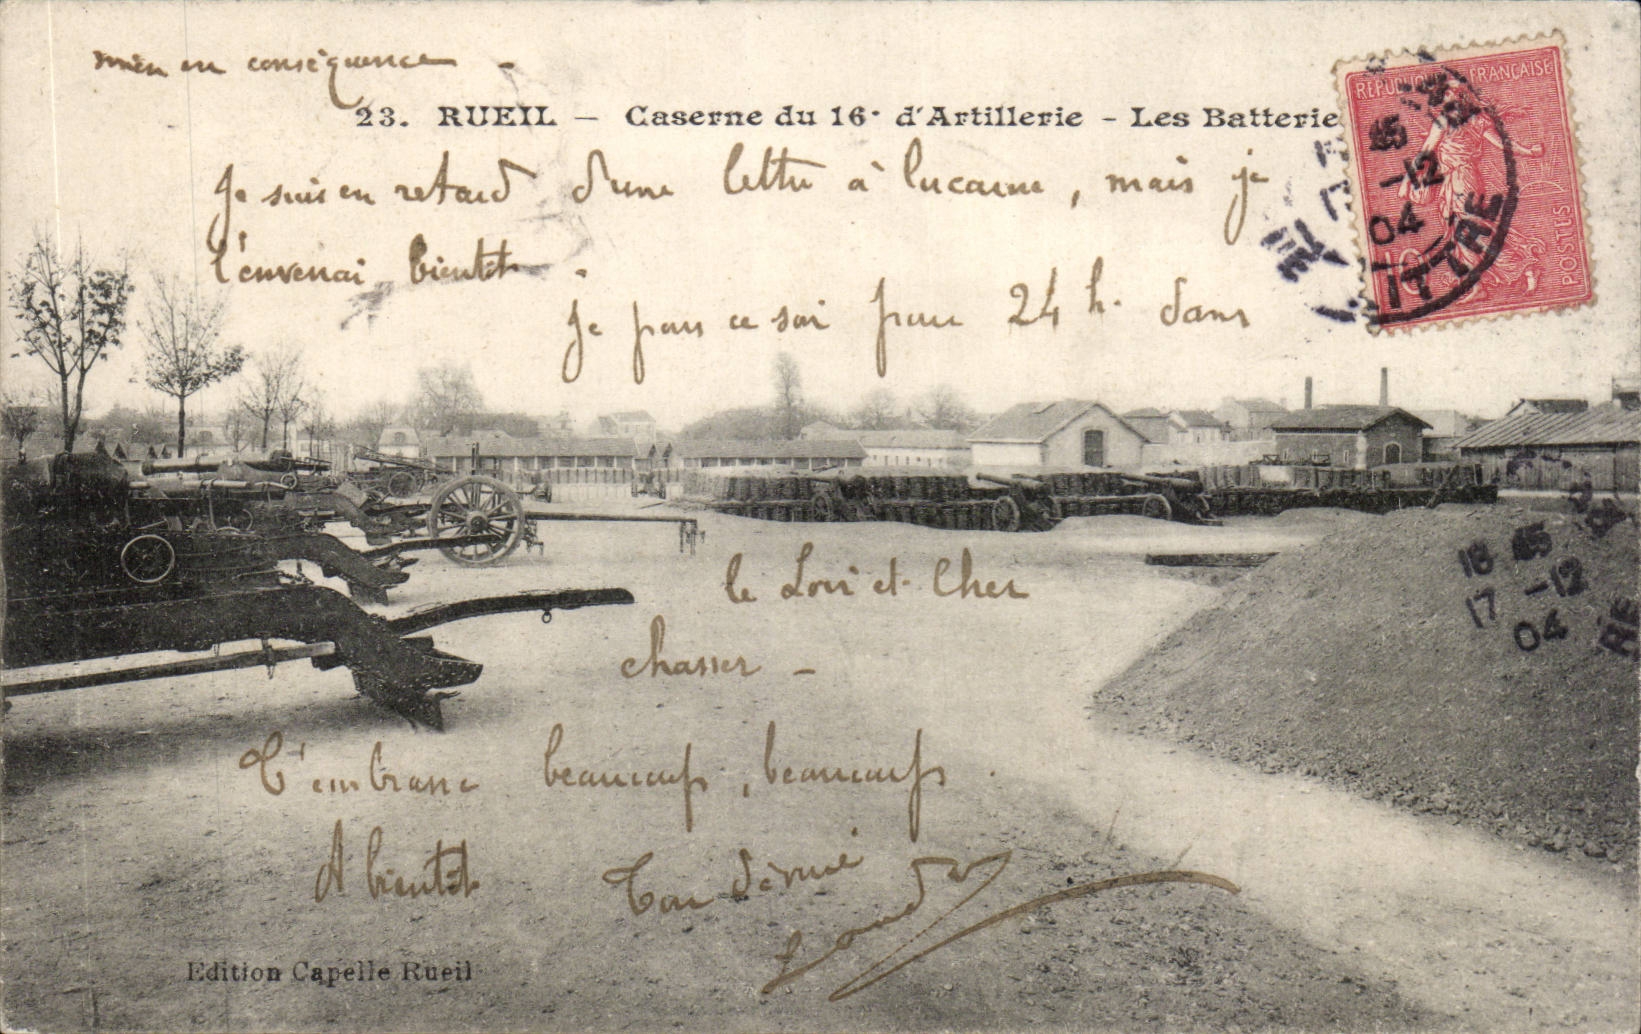 mien en conséquence -
23. RUEIL - Caserne du 16e d'Artillerie - Les Batterie
REPUBLIQUE FRANÇAISE
POSTES
10
-12
04
ITTRE
Je suis en retard d'une lettre à lucarne, mais je
l'enverrai bientôt.
Je pars ce soir pour 24 h. dans
le Loir et Cher
chasser -
18 45
17 -12
04
RE
T'embrasse beaucoup, beaucoup.
A bientôt Ton dévoué
Edition Capelle Rueil